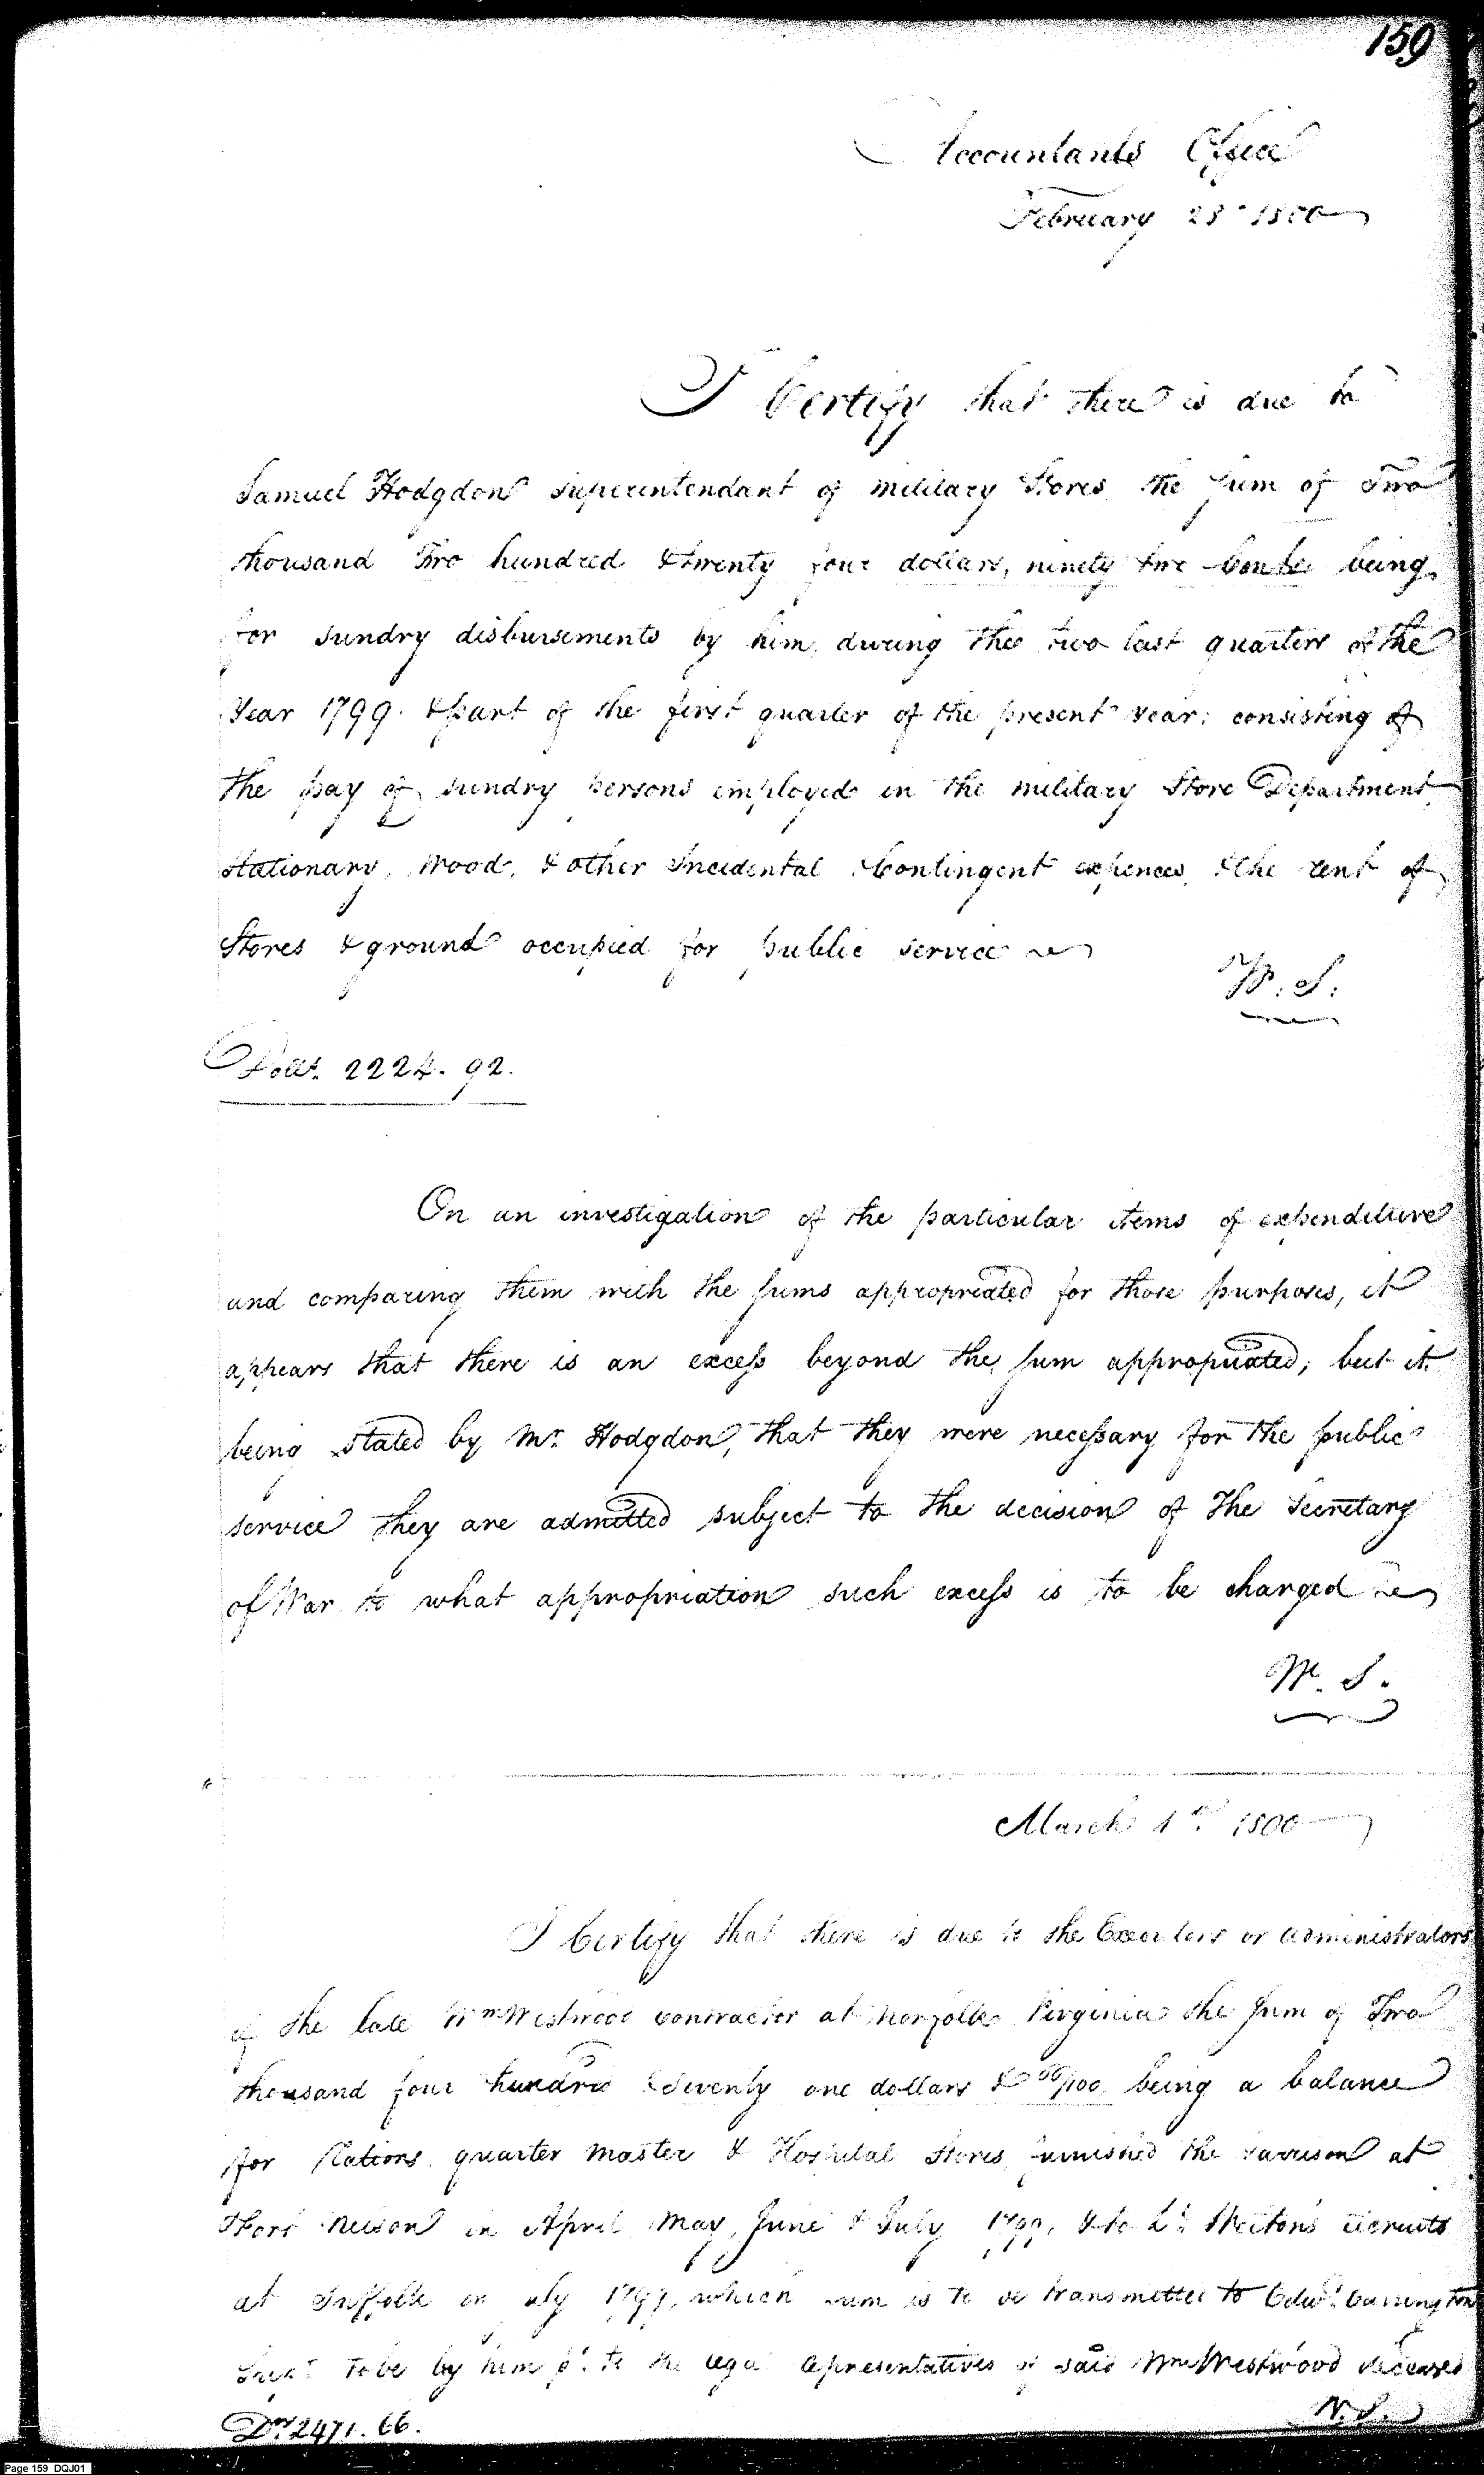 159
Accountants Office
February 28th 1800
I Certify that there is due to
Samuel Hodgdon Superintendant of military Stores the Sum of Two
thousand Two hundred & twenty four dollars, ninety two Cents being
for Sundry disbursements by him, during the two last quarters of the
Year 1799. & part of the first quarter of the present Year; consisting of
the pay of sundry persons employed in the military Store Department
Stationary, Wood, & other Incidental Contingent expences, & the rent of
Stores & ground occupied for public service
W. S.
Dolls. 2224. 92.
On an investigation of the particular items of expenditure
and comparing them with the sums appropriated for those purposes, it
appears that there is an excess beyond the sum appropriated; but it
being stated by Mr. Hodgdon, that they were necessary for the public
service they are admitted subject to the decision of the Secretary
of War to what appropriation such excess is to be charged
W. S.
March 1st. 1800
I Certify that there is due to the Executors or administrators
of the late Wm Westwood contractor at Norfolk Virginia the sum of Two
thousand four hundred & seventy one dollars & 66/100 being a balance
for Rations, quarter master & Hospital Stores, furnished the Garrison at
Fort Nelson in April, May, June & July 1799, & to Lt. recruits
at Suffolk in July 1799, which sum is to be transmitted to Edwd. Carrington
to be by him pd. to the legal representatives of said Wm Westwood deceased
W. S.
Drs. 2471. 66.
Page 159 DQJ01